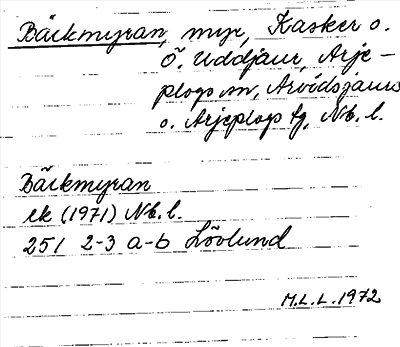 Bäckmyran, myr, Kasker o.
Ö. Uddjaur, Arje-
plogs sn, Arvidsjaurs
o. Arjeplogs tg, Nb. l.
Bäckmyran
ek (1971) Nb. l.
25I 2-3 a-b Lövlund
M.L.L. 1972